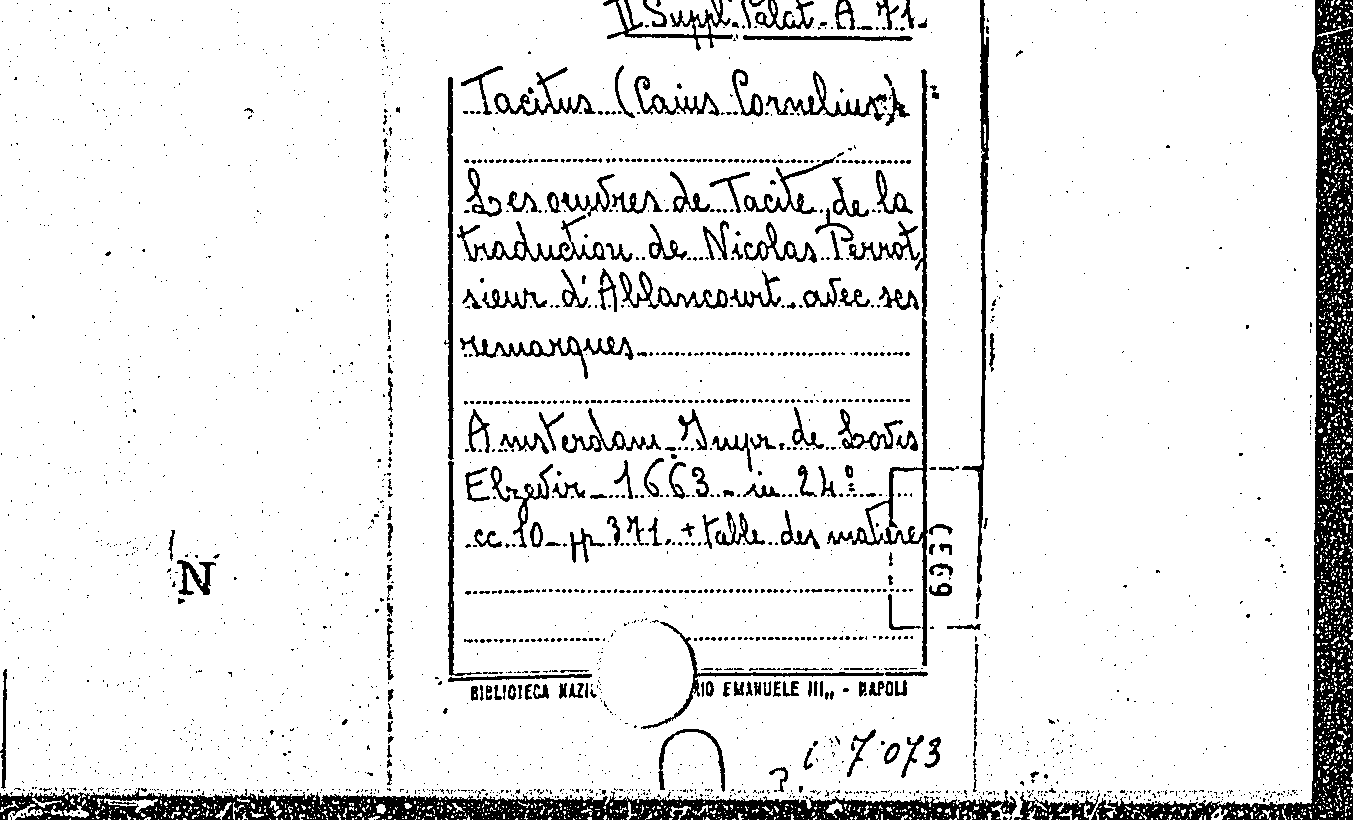 II Suppl. Palat. A 71.
Tacitus (Caius Cornelius)
Les oeuvres de Tacite, de la
traduction de Nicolas Perrot,
sieur d'Ablancourt. avec ses
remarques
Amsterdam. Impr. de Lovis
Elzevir. 1663. in 24º
cc. 10. pp 371. + table des matieres
N
BIBLIOTECA RIO EMANUELE III,, - NAPOLI
7073